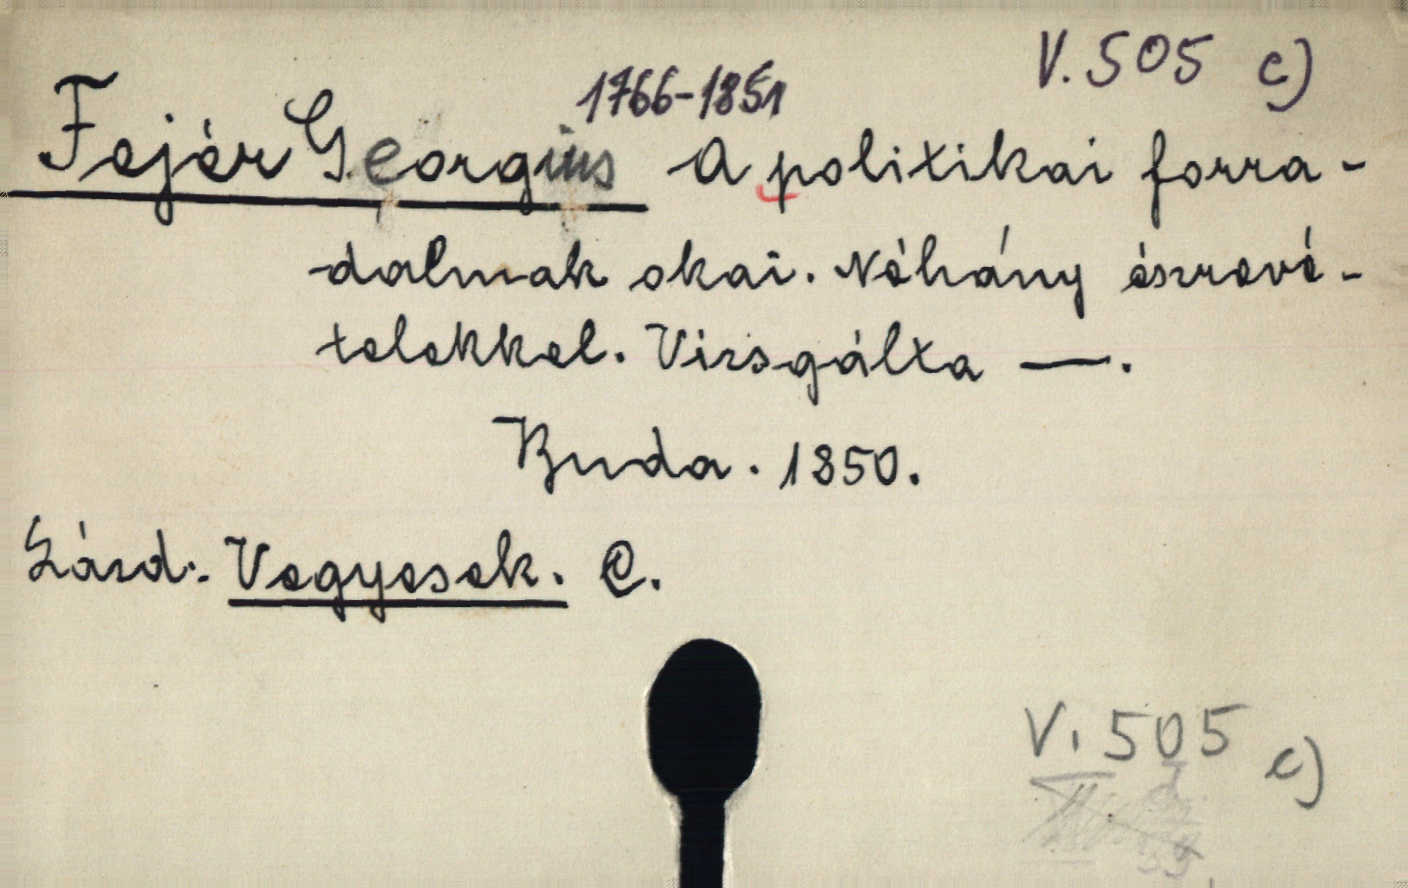 V. 505 c)
1766-1851
Fejér Georgius A politikai forra-
dalmak okai. Néhány észrevé-
telekkel. Vizsgálta —.
Buda. 1850.
Szász. Vegyesek. C.
V. 505 c)